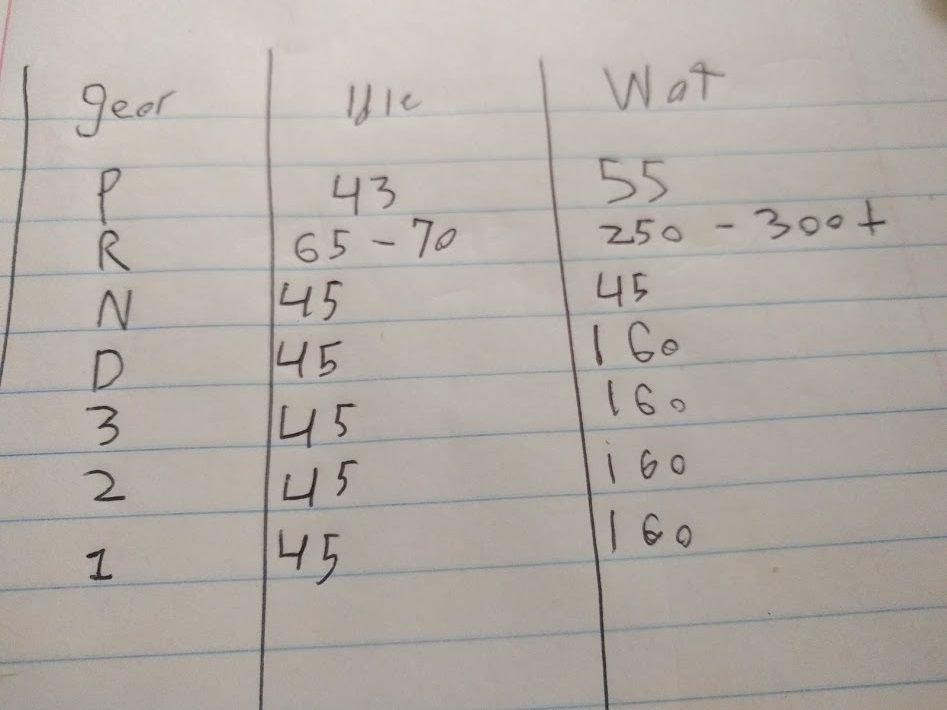 gear Idle Wot
P 43 55
R 65 - 70 250 - 300+
N 45 45
D 45 160
3 45 160
2 45 160
1 45 160